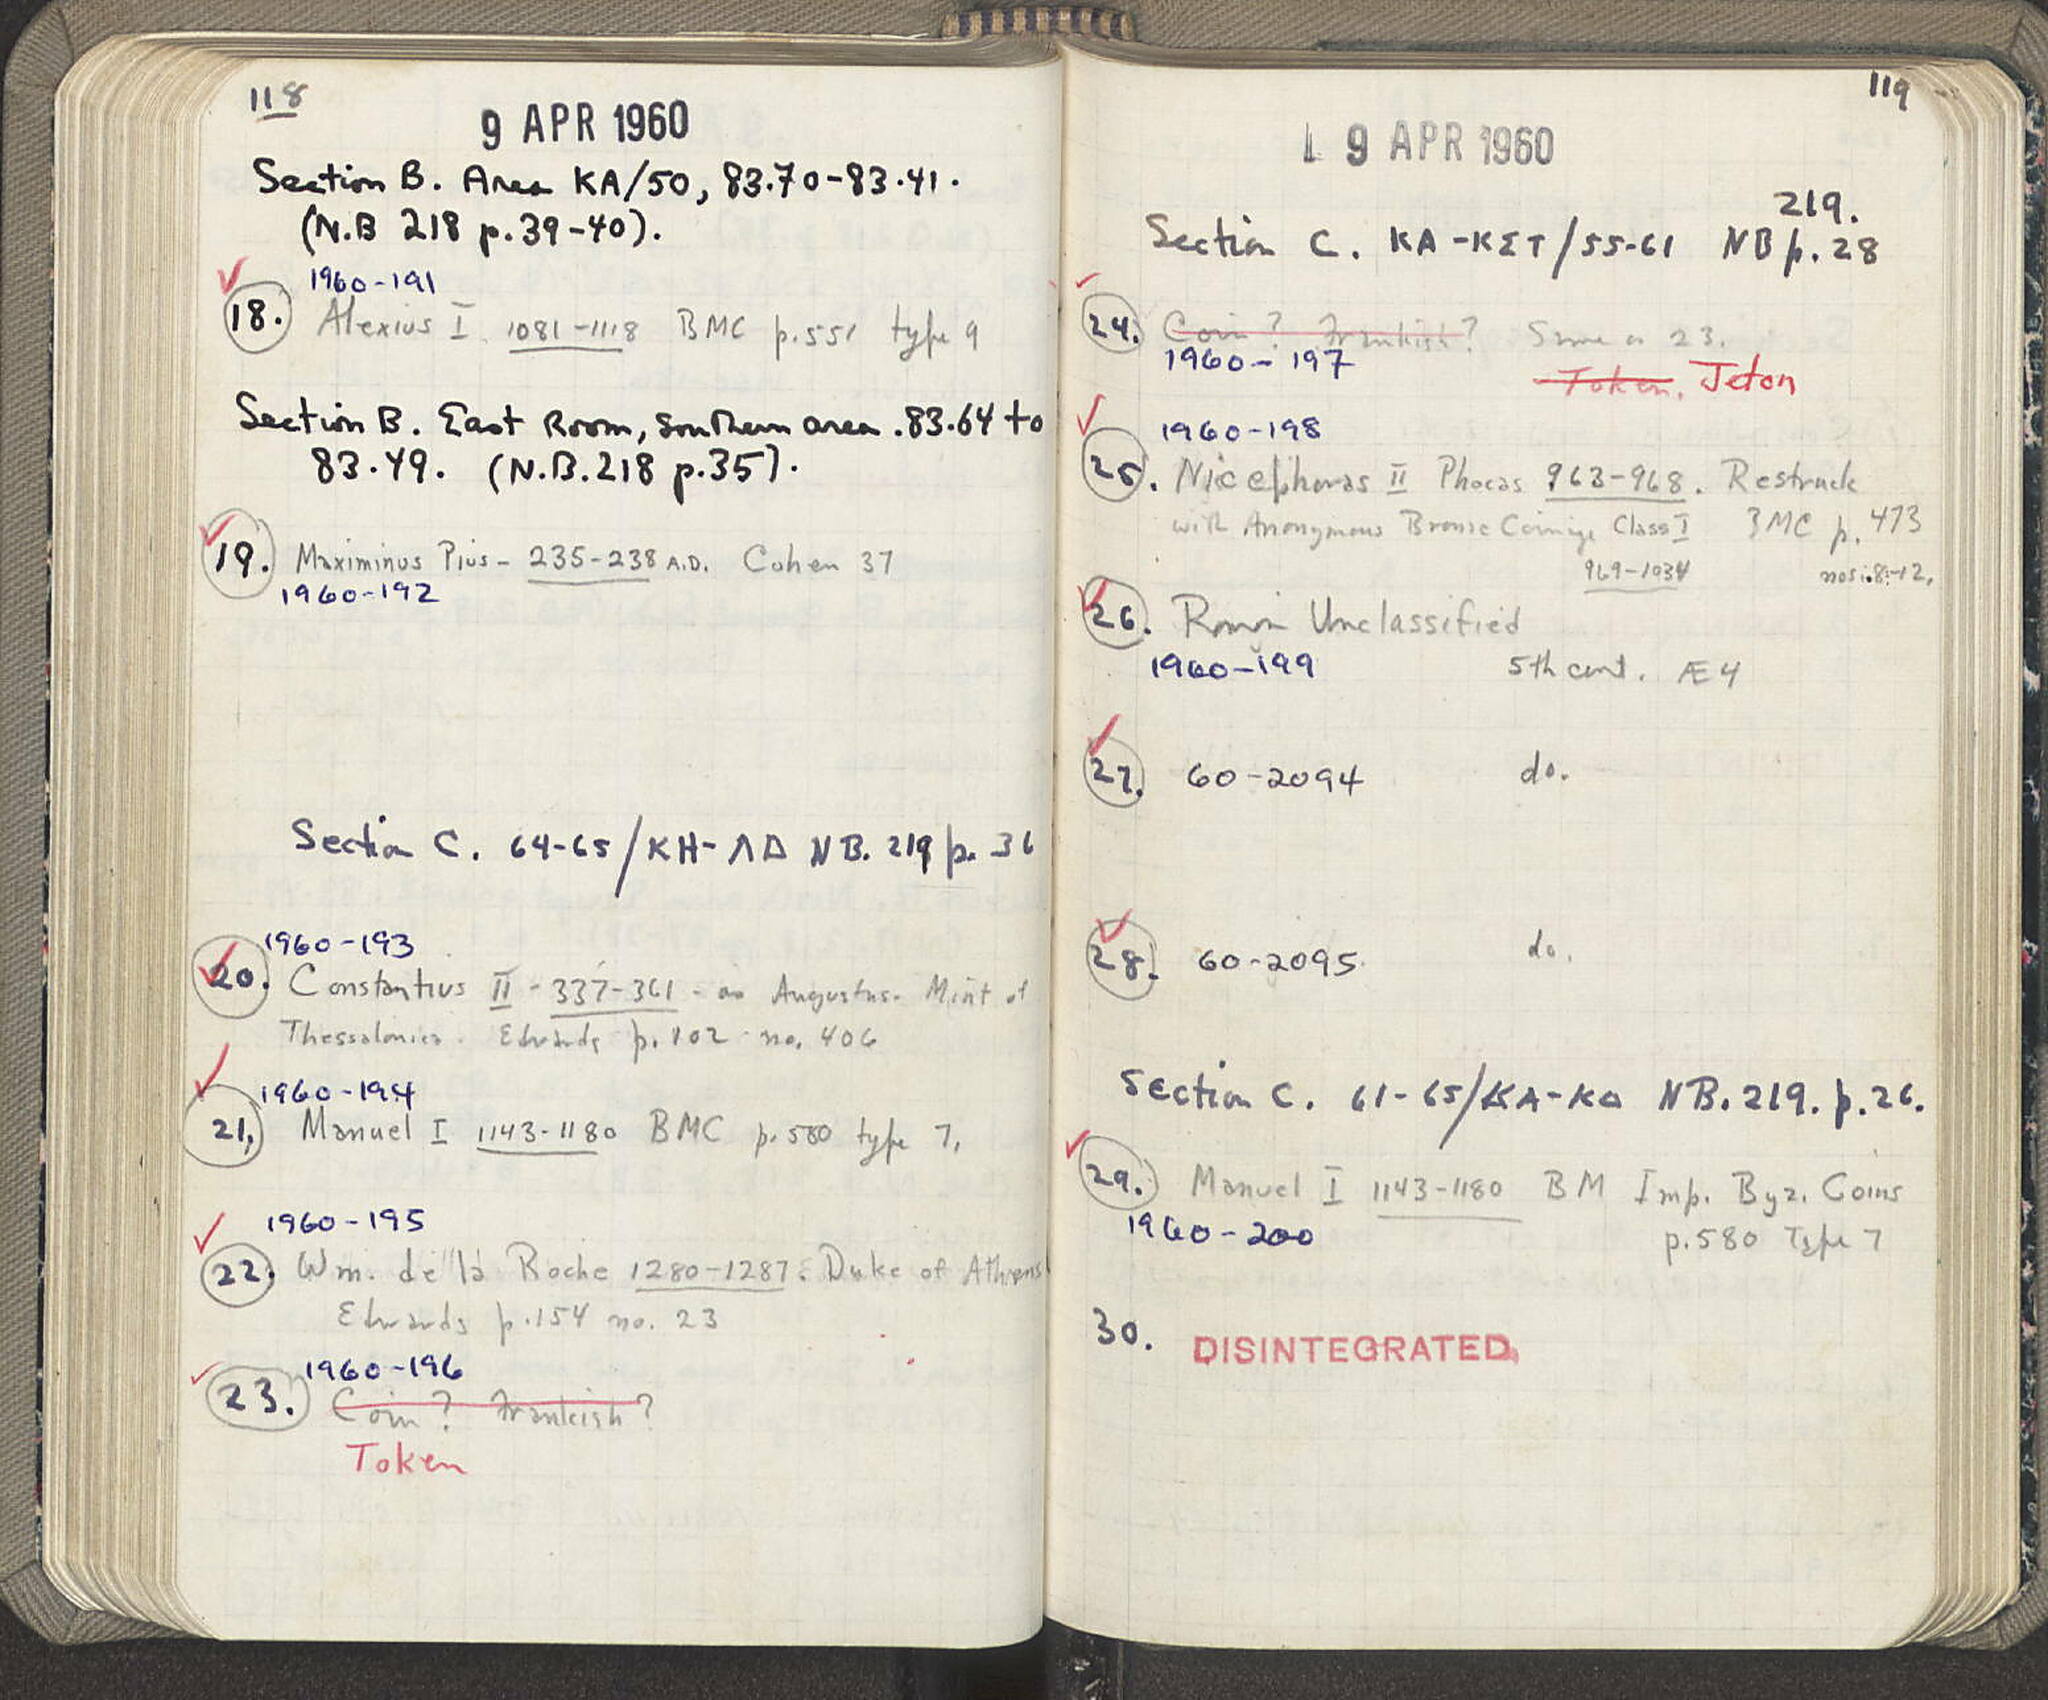 118
9 APR 1960
Section B. Area KA/50, 83.70-83.41.
(N.B 218 p.39-40).
1960-191
18. Alexius I 1081-1118 BMC p.551 type 9
Section B. East Room, Southern area .83.64 to
83.49. (N.B.218 p.35).
19. Maximinus Pius - 235-238 A.D. Cohen 37
1960-192
Section C. 64-65/KH-ΛΔ NB. 219 p. 36
1960-193
20. Constantius II - 337-361 - as Augustus. Mint of
Thessalonica. Edwards p.102 no. 406
1960-194
21. Manuel I 1143-1180 BMC p.580 type 7.
1960-195
22. Wm. de la Roche 1280-1287. Duke of Athens
Edwards p.154 no. 23
1960-196
23. Coin? Frankish?
Token
119
9 APR 1960
219.
Section C. KA-KΣT/55-61 NB p. 28
24. Coin? Frankish? Same as 23.
1960-197
Token. Jeton
1960-198
25. Nicephoras II Phocas 963-968. Restruck
with Anonymous Bronze Coinage Class I BMC p. 473
969-1034 nos. 8-12.
26. Roman Unclassified
1960-199 5th cent. Æ4
27. 60-2094 do.
28. 60-2095. do.
Section C. 61-65/KA-KΔ NB. 219. p.26.
29. Manuel I 1143-1180 BM Imp. Byz. Coins
1960-200 p.580 Type 7
30. DISINTEGRATED